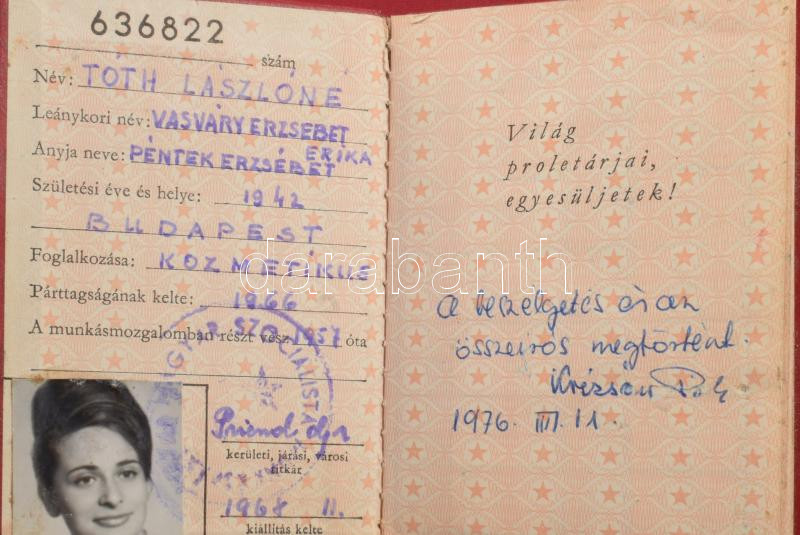 636822
szám
Név: TÓTH LÁSZLÓNÉ
Leánykori név: VASVÁRY ERZSÉBET
ERIKA
Anyja neve: PÉNTEK ERZSÉBET
Születési éve és helye: 1942
BUDAPEST
Foglalkozása: KOZMETIKUS
Párttagságának kelte: 1966
A munkásmozgalomban részt vesz 1957 óta
kerületi, járási, városi
titkár
1968 11.
kiállítás kelte
Világ
proletárjai,
egyesüljetek!
a beszélgetés és az
összeirós megtörtént.
1976. III. 11.
darabanth